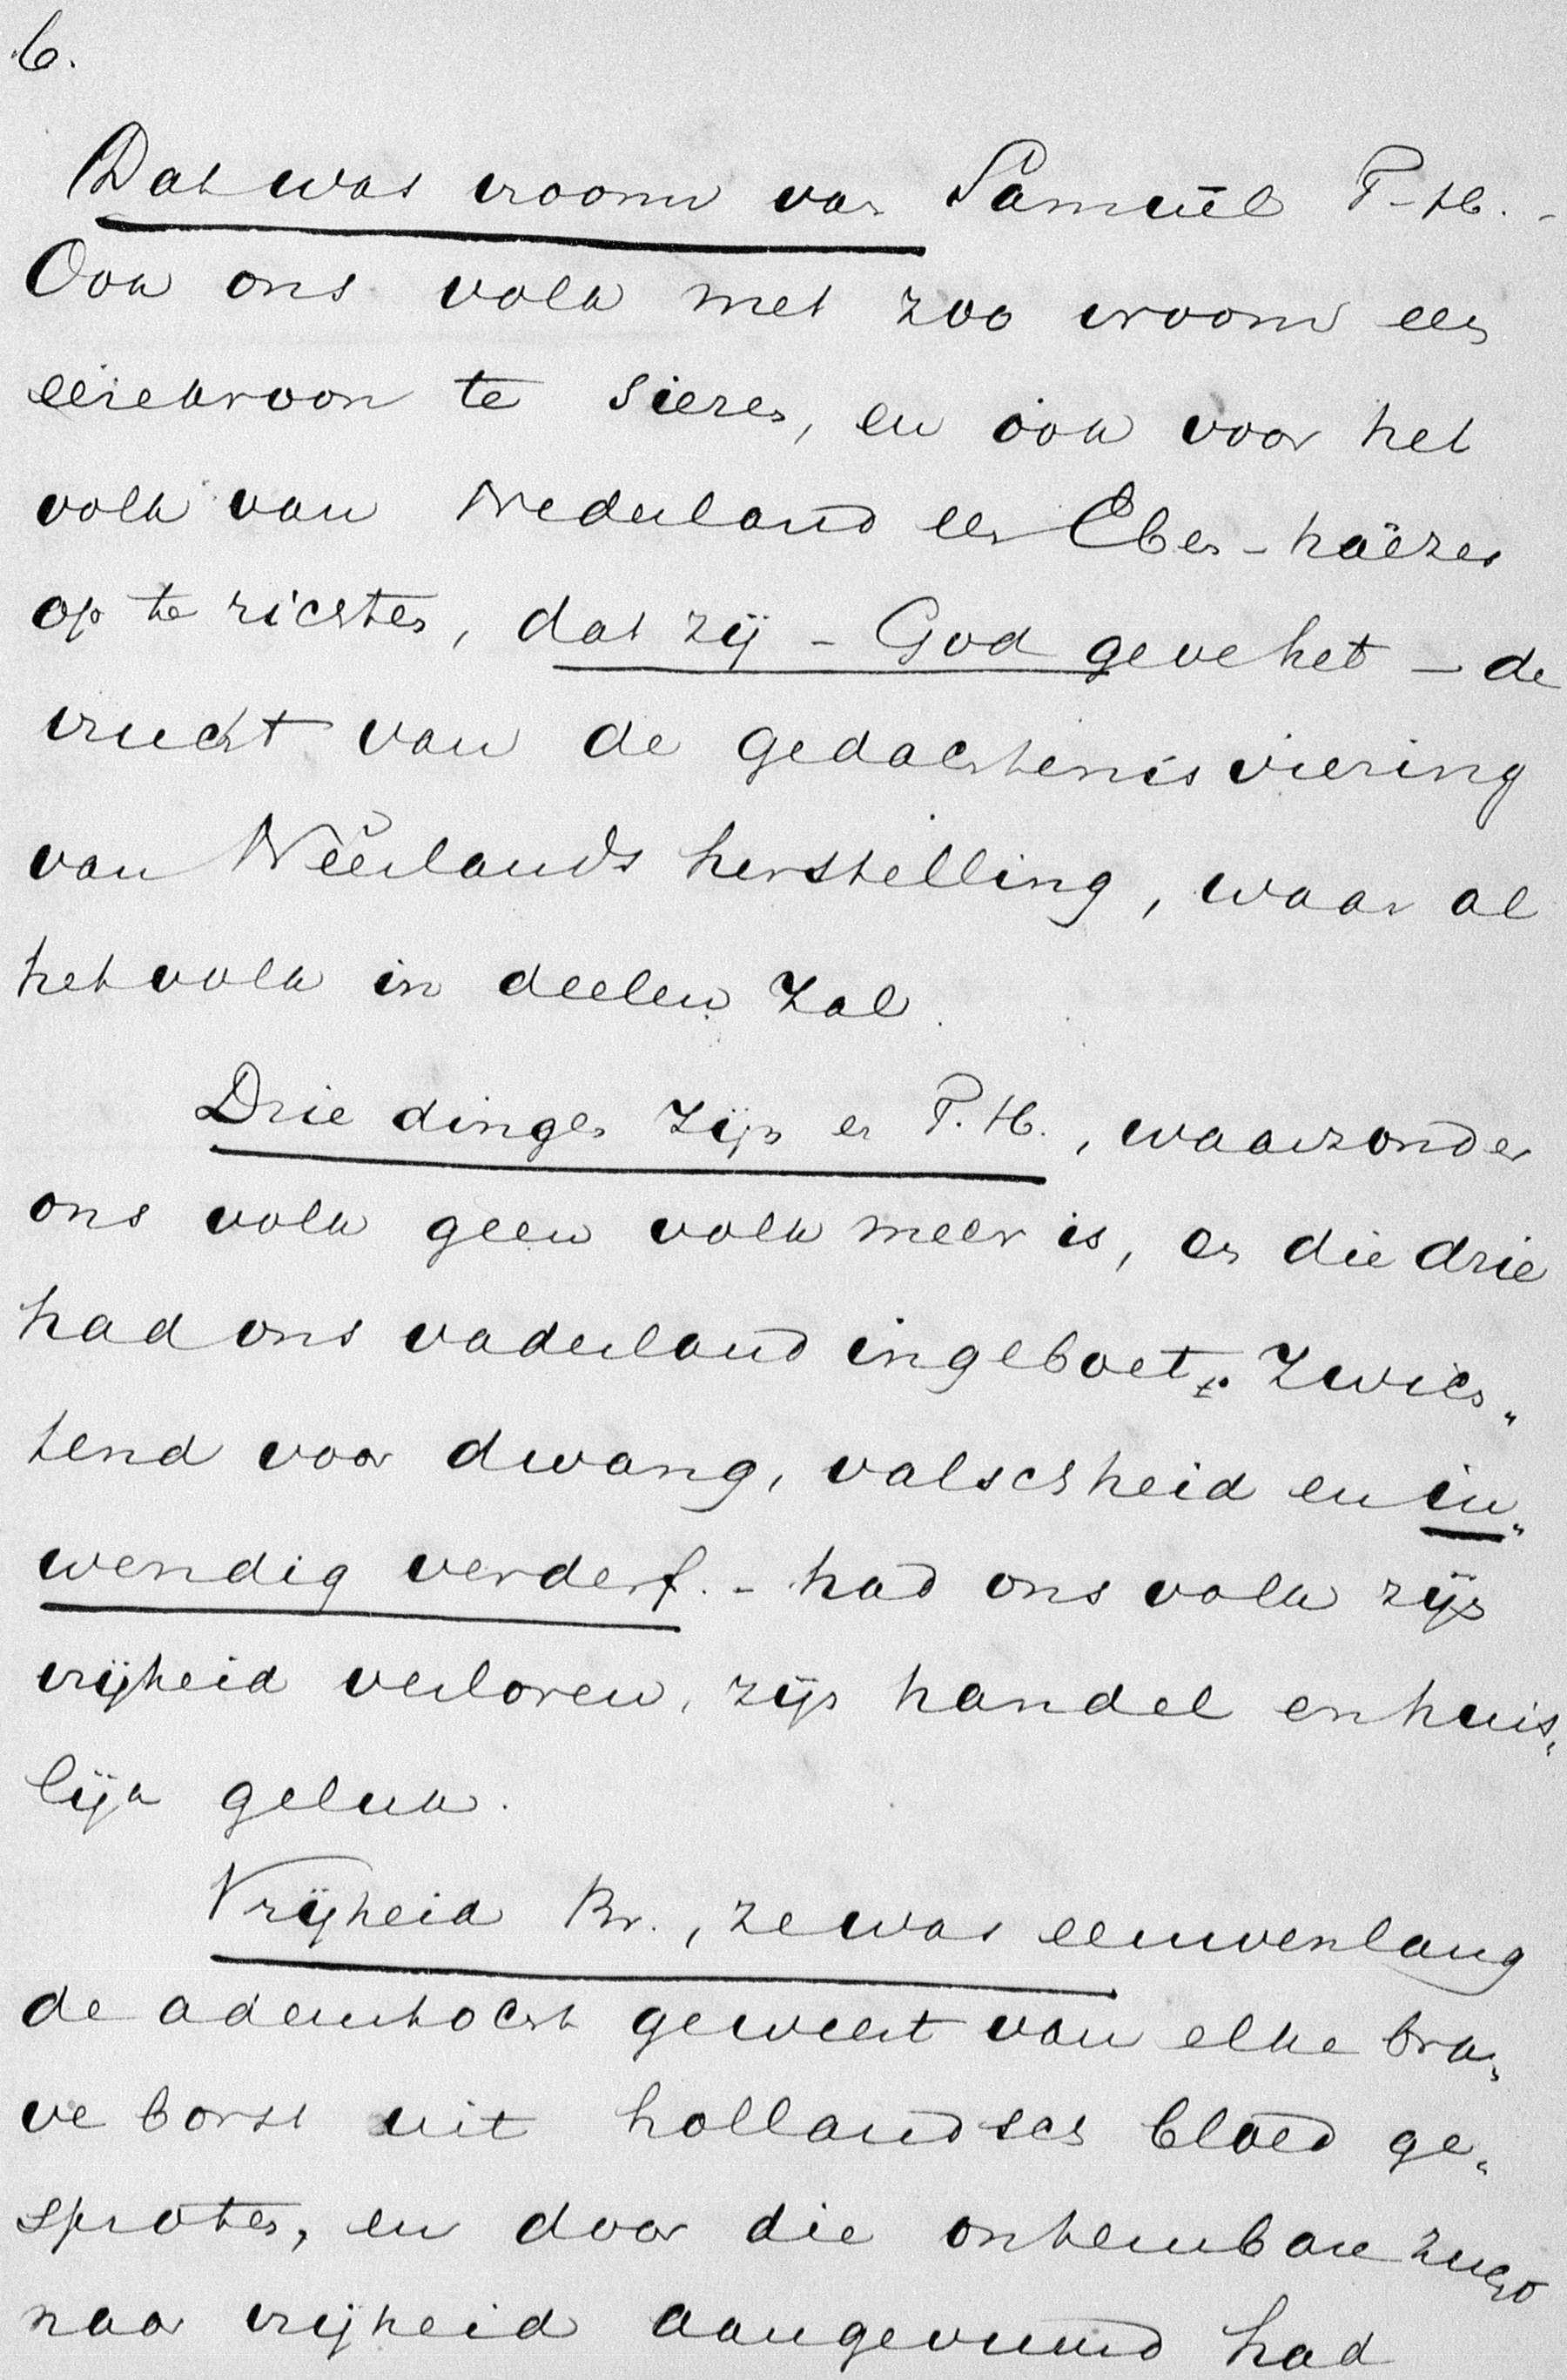 6.
Dat was vroom van Samuël T-H. -
Ook ons volk met zoo vroom een
eerekroon te sieren, en ook voor het
volk van Nederland een Eben-haëzer
op te richten, dat zij - God geve het - de
vrucht van de gedachtenisviering
van Neêrlands herstelling, waar al
het volk in deelen zal.
Drie dingen zijn er T.H., waarzonder
ons volk geen volk meer is, en die drie
had ons vaderland ingeboet. Zwich„
tend voor dwang, valschheid en in„
wendig verderf. - had ons volk zijn
vrijheid verloren, zijn handel en huis„
lijk geluk.
Vrijheid Br., ze was eeuwenlang
de ademtocht geweest van elke bra„
ve borst uit hollandsch bloed ge„
sproten, en door die ontembare zucht
naar vrijheid aangevuurd had